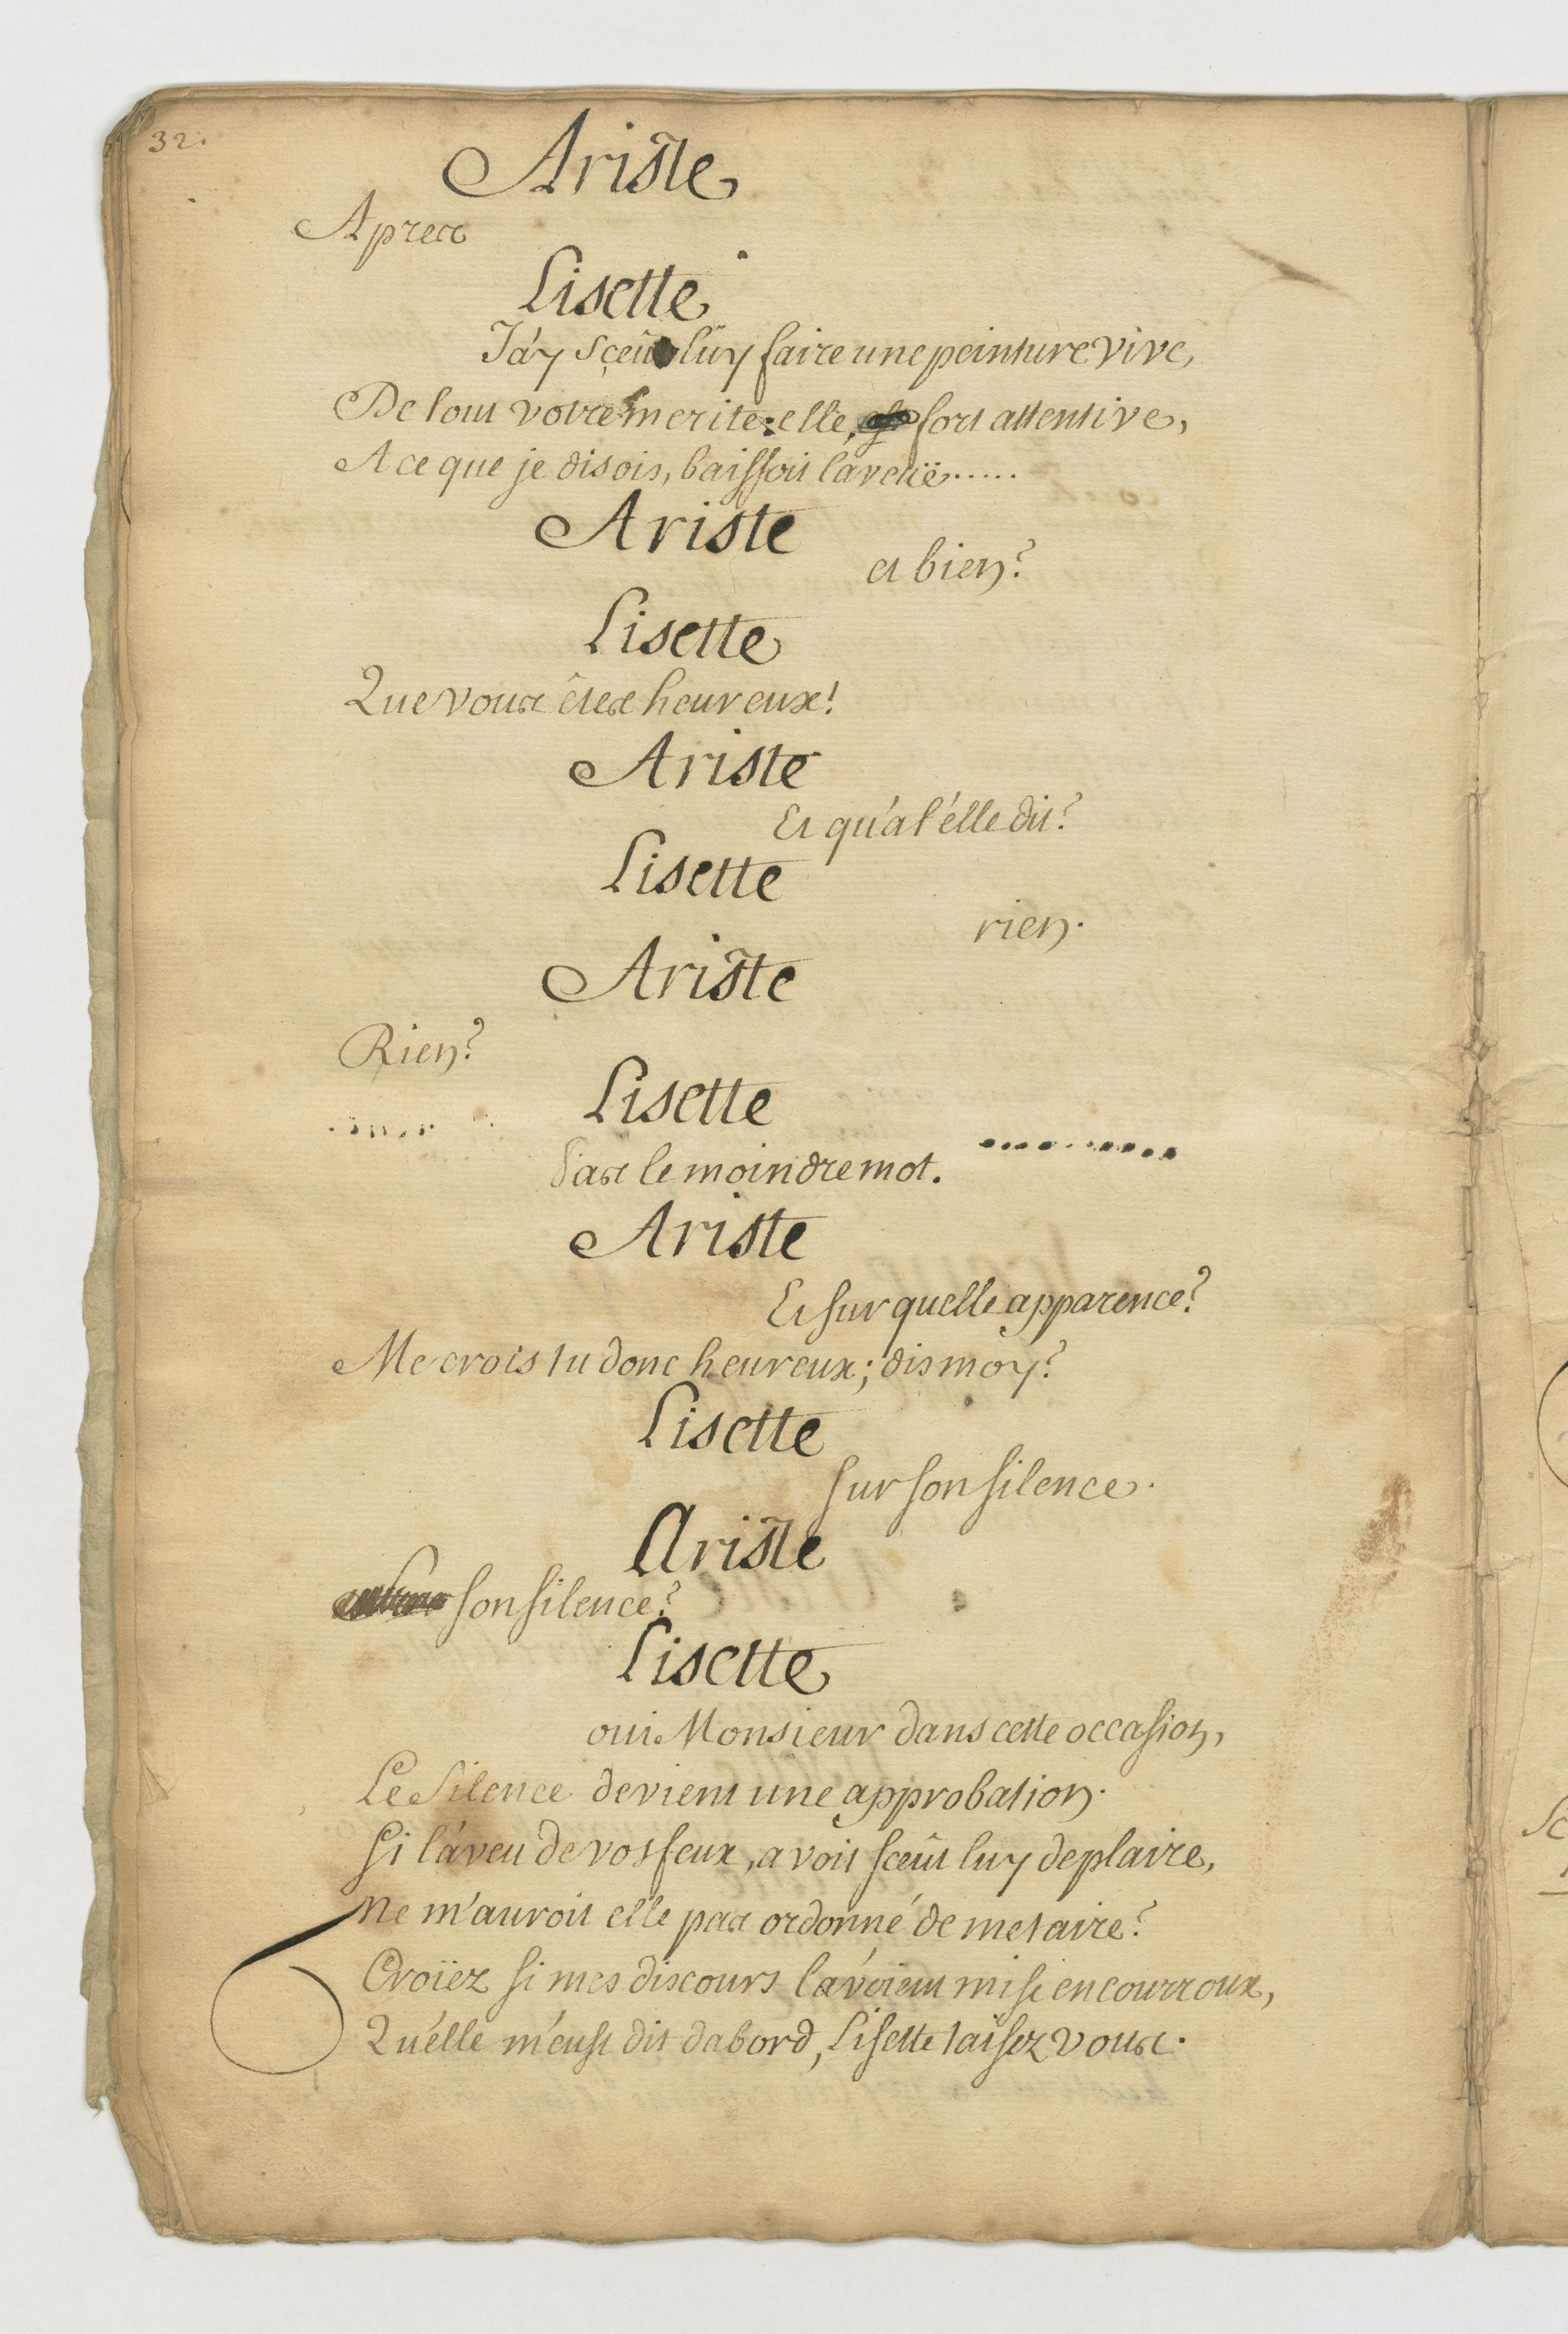 32.
Ariste
Apres
Lisette
J'ay sçeu luy faire une peinture vive,
De tout votre merite: elle, fort attentive,
A ce que je disois, baissoit la veüe......
Ariste
et bien?
Lisette
Que vous êtes heureux!
Ariste
Et qu'at'élle dit?
Lisette
rien.
Ariste
Rien?
Lisette
Pas le moindre mot. ..........
Ariste
Et sur quelle apparence?
Me crois tu donc heureux; dis moy?
Lisette
sur son silence.
Ariste
son silence?
Lisette
oui Monsieur dans cette occasion,
Le Silence devient une approbation.
Si l'aveu de vos feux, avoit sceût luy deplaire,
Ne m'auroit elle pas ordonné de me taire?
Croïez si mes discours l'avoient mise en courroux,
Qu'elle m'eust dit dabord, Lisette taisez vous.